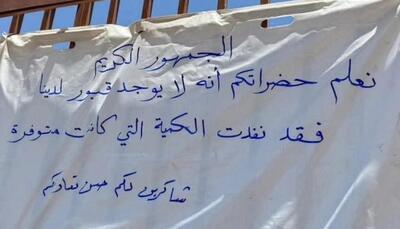 الجمهور الكريم
نعلم حضراتكم أنه لا يوجد قبور لدينا
فقد نفدت الكمية التي كانت متوفرة
شاكرين لكم حسن تعاونكم